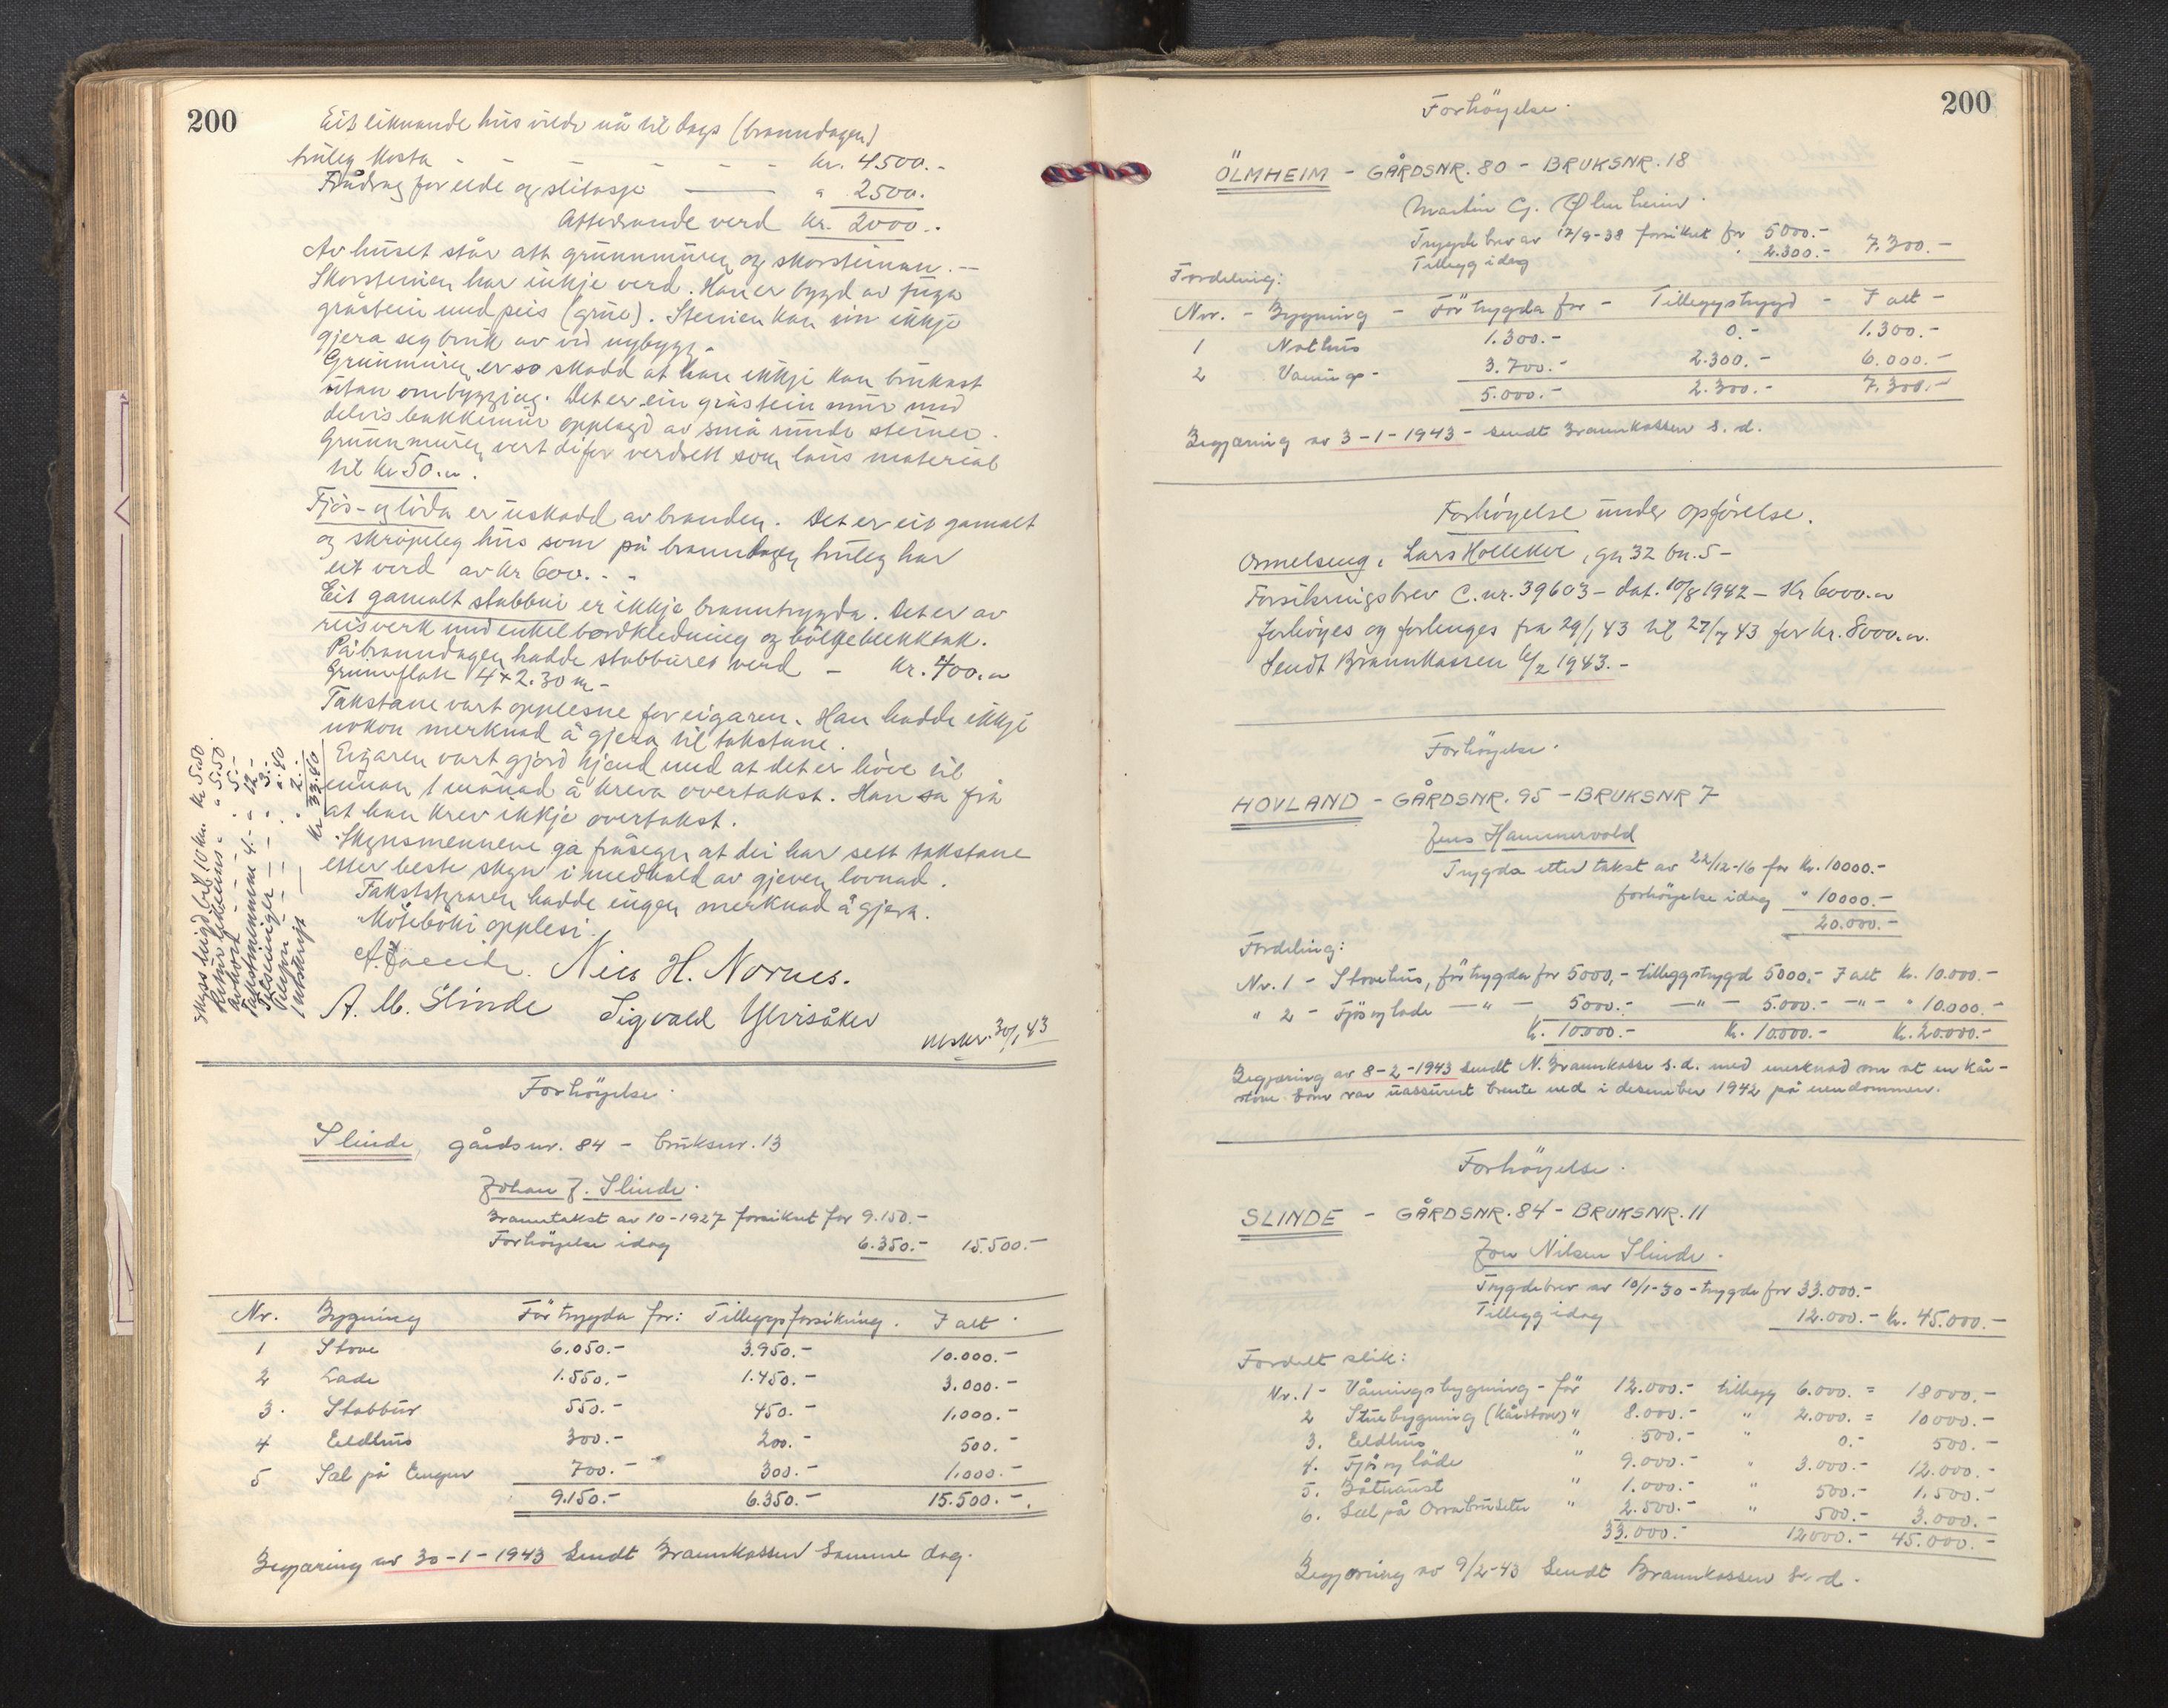 200
Eit liknande hus vilde nå til dags (branndagen)
truleg kosta - - - - - - - kr. 4500.-
Frådrag for elde og slitasje — " 2500.
Attverande verd kr. 2000.-
Av huset står att grunnmuren og skorsteinen. —
Skorsteinen har inkje verd. Han er bygd av fuga
gråstein med peis (grue). Steinen kan ein ikkje
gjera seg bruk av vid nybygg.
Grunnmuren er so skadd at han ikkje kan brukast
utan ombygging. Det er ein gråstein mur med
delvis bakkemur opplagd av små runde steiner.
Grunnmuren vert difor verdsett som laus material
til kr 50.-.
Fjøs- og löda er uskadd av branden. Det er eit gamalt
og skröpeleg hus som på branndagen truleg har
eit verd av kr 600. - -
Eit gamalt stabbur er ikkje branntrygda. Det er av
reisverk med enkel bordkledning og bölgeblekktak.
På branndagen hadde stabburet verd - kr. 400.-
Grunnflate 4 x 2.30 m -
Takstane vart opplesne for eigaren. Han hadde ikkje
nokon merknad å gjera til takstane.
Eigaren vart gjord kjend med at det er höve til
innan 1 månad å kreva overtakst. Han sa frå
at han krev ikkje overtakst.
Skynsmennene ga fråsegn at dei har sett takstane
etter beste skyn i medhald av gjeven lovnad.
Takststyraren hadde ingen merknad å gjera.
Möteboki opplesi.
Nils H. Nornes.
A. M. Slinde Sigvald Ylvisåker
utskr. 30/1 43
Skyss leigd bil 10 km. kr 5.50
5.50
5.-
Takstmennene 4.- " 12.-
3.-
Telefon -.40
Utskrift 2.-
kr 33.40
Forhöyelse.
Slinde, gårdsnr. 84 - bruksnr. 13
Johan J. Slinde.
Branntakst av 10-1927 forsikret for 9.150.-
Forhöyelse idag 6.350.- 15.500.-
Nr. Bygning För trygda for: Tilleggsforsikring. I alt.
1 Stove 6.050.- 3.950.- 10.000.-
2 Lade 1.550.- 1.450.- 3.000.-
3. Stabbur 550.- 450.- 1.000.-
4 Eeldhus 300.- 200.- 500.-
5 Sæl på Lengur 700.- 300.- 1.000.-
9.150.- 6.350.- 15.500.-.
Begjæring av 30-1-1943 Sendt Brannkassen samme dag.
200
Forhöyelse.
ÖLMHEIM - GÅRDSNR. 80 - BRUKSNR. 18
Martin G. Ølmheim.
Trygdebrev av 17/9-38 forsikret for 5000.-
Tillegg idag " 2.300.- 7.300.-
Fordeling:
Nr. - Bygning - För trygda for - Tilleggstrygd - I alt -
1 Nothus 1.300.- 0.- 1.300.-
2 Vaning - 3.700.- 2.300.- 6.000.-
5.000.- 2.300.- 7.300.-
Begjæring av 3-1-1943 - sendt Brannkassen s. d.
Forhöyelse under opförelse.
Ormelseng, Lars Hollekve, gn 32 bn. 5 -
Forsikringsbrev C. nr. 39603 - dat. 10/8 1942 - Kr 6000.-
forhöyes og forlenges fra 29/1 43 til 27/4 43 for kr. 8000.-.
Sendt Brannkassen 6/2 1943. -
Forhöyelse.
HOVLAND - GÅRDSNR. 95 - BRUKSNR 7
Jens Hammervold
Trygda etter takst av 22/12-16 for kr. 10000.-
forhöyelse idag " 10000.-
20.000.-
Fordeling:
Nr. 1 - Stovehus, för trygda for 5000,- tilleggstrygd 5000,- I alt kr. 10.000.-
" 2 - Fjös og lade — " — 5000.- — " — 5.000.- — " — " 10.000.-
kr. 10.000.- kr. 10.000.- kr. 20.000.-
Begjæring av 8-2-1943 sendt N. Brannkasse s.d. med merknad om at en kår-
stove som var uassurert brente ned i desember 1942 på eiendommen.
Forhöyelse.
SLINDE - GÅRDSNR. 84 - BRUKSNR. 11
Jon Nilsen Slinde.
Trygdebrev av 10/1-30 - trygda for 33.000.-
Tillegg idag 12.000.- kr. 45.000.-
Fordelt slik:
Nr. 1 - Våningsbygning - för 12.000.- tillegg 6.000. = 18000.-
2 Stuebygning (kårstova) " 8.000.- " 2.000. = 10000.-
3. Eeldhus " 500.- " 0.- 500.-
4. Fjös og låde " 9.000.- " 3.000.- 12.000.-
5. Båtnaust " 1.000.- " 500.- 1.500.-
6. Sæl på Orrabruseter " 2.500.- " 500.- 3.000.-
33.000.- 12000.- 45.000.-
Begjæring av 9/2-43 Sendt Brannkassen s. d.